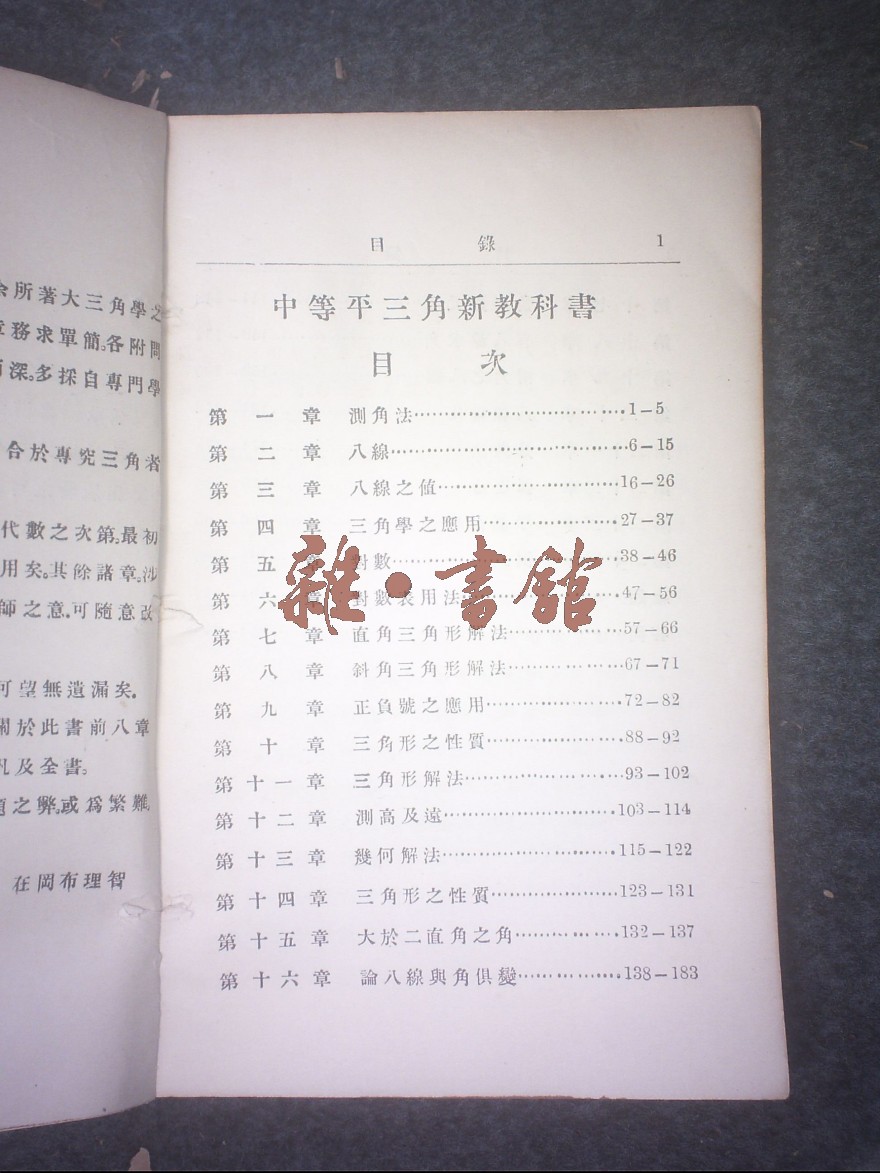 余所著大三角學之
章務求單簡。各附問
而深。多採自專門學
合於專究三角者
代數之次第。最初
用矣。其餘諸章。沙
師之意。可隨意改
可望無遺漏矣。
關於此書前八章
凡及全書。
題之弊。或爲繁難。
在岡布理智
目錄 1
中等平三角新教科書
目次
第一章 測角法……………………………1-5
第二章 八線……………………………6-15
第三章 八線之值……………………………16-26
第四章 三角學之應用…………………27-37
第五章 對數……………………………38-46
第六章 對數表用法……………………47-56
第七章 直角三角形解法………………57-66
第八章 斜角三角形解法………………67-71
第九章 正負號之應用…………………72-82
第十章 三角形之性質…………………88-92
第十一章 三角形解法……………………93-102
第十二章 測高及遠………………………103-114
第十三章 幾何解法………………………115-122
第十四章 三角形之性質…………………123-131
第十五章 大於二直角之角………………132-137
第十六章 論八線與角俱變………………138-183
雜·書館